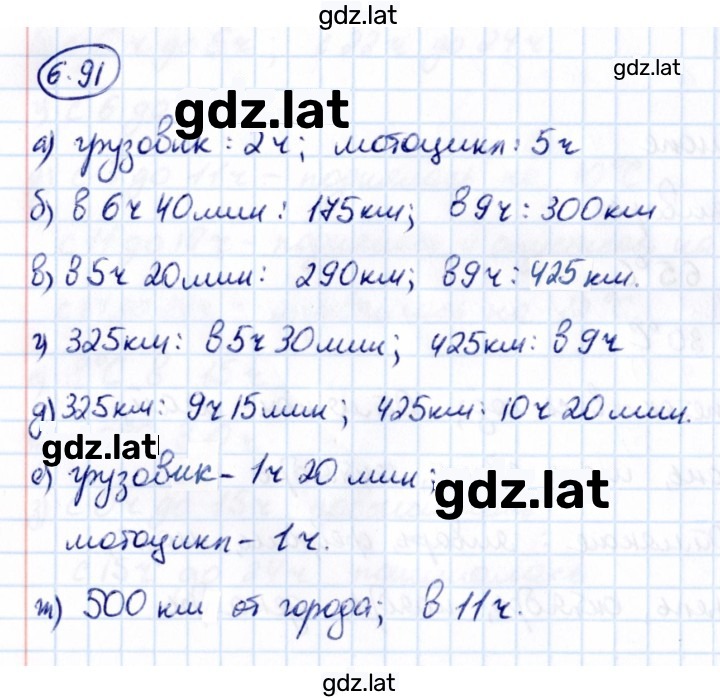 gdz.lat
6.91
gdz.lat
gdz.lat
а) грузовик: 2ч; мотоцикл: 5ч
б) в 6ч 40мин: 175км; в 9ч: 300км
в) в 5ч 20мин: 290км; в 9ч: 425км.
г) 325км: в 5ч 30мин; 425км: в 9ч
д) 325км: 9ч 15мин; 425км: 10ч 20мин.
gdz.lat
е) грузовик - 1ч 20 мин;
gdz.lat
мотоцикл - 1ч.
ж) 500 км от города; в 11ч.
gdz.lat